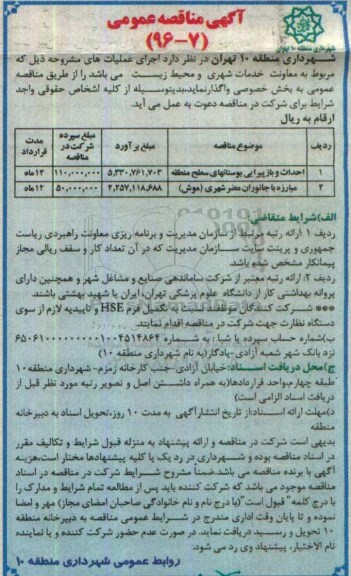 آگهی مناقصه عمومی
(۷-۹۶)
شهرداری منطقه ۱۰ تهران
شهرداری منطقه ۱۰ تهران در نظر دارد اجرای عملیات های مشروحه ذیل که
مربوط به معاونت خدمات شهری و محیط زیست می باشد را از طریق مناقصه
عمومی به بخش خصوصی واگذارنماید،بدینوسیله از کلیه اشخاص حقوقی واجد
شرایط برای شرکت در مناقصه دعوت به عمل می آید.
ارقام به ریال
ردیف موضوع مناقصه مبلغ برآورد مبلغ سپرده شرکت در مناقصه مدت قرارداد
۱ احداث و بازپیرایی بوستانهای سطح منطقه ۵,۳۳۰,۷۶۱,۷۰۳ ۱۱۰,۰۰۰,۰۰۰ ۱۲ماه
۲ مبارزه با جانوران مضر شهری (موش) ۲,۲۵۷,۱۱۸,۶۸۸ ۵۰,۰۰۰,۰۰۰ ۱۲ماه
الف)شرایط متقاضی:
ردیف ۱:ارائه رتبه مرتبط از سازمان مدیریت و برنامه ریزی معاونت راهبردی ریاست
جمهوری و پرینت سایت سازمان مدیریت که در آن تعداد کار و سقف ریالی مجاز
پیمانکار مشخص شده باشد
ردیف ۲: ارائه رتبه معتبر از شرکت ساماندهی صنایع و مشاغل شهر و همچنین دارای
پروانه بهداشتی کار از دانشگاه علوم پزشکی تهران، ایران یا شهید بهشتی باشند.
*** شرکت کنندگان موظفند نسبت به تکمیل فرم HSE و تاییدیه لازم از سوی
دستگاه نظارت جهت شرکت در مناقصه اقدام نمایند.
ب)شماره حساب سپرده یا شبا : به شماره
نزد بانک شهر شعبه آزادی-یادگار(به نام شهرداری منطقه ۱۰)
ج)محل دریافت اسناد:خیابان آزادی-جنب کارخانه زمزم-شهرداری منطقه۱۰
طبقه چهارم-واحد قراردادها(به همراه داشتن اصل و تصویر رتبه مورد نظر قبل از
دریافت اسناد الزامی است)
د)مهلت ارائه اسناد:از تاریخ انتشارآگهی به مدت ۱۰ روز،تحویل اسناد به دبیرخانه
منطقه
بدیهی است شرکت در مناقصه و ارائه پیشنهاد به منزله قبول شرایط و تکالیف مقرر
در اسناد مناقصه بوده و شهرداری در رد یک یا کلیه پیشنهادها مختار است،هزینه
آگهی با برنده مناقصه می باشد.ضمناً مشروح شرایط شرکت در مناقصه در اسناد
مناقصه موجود می باشد که شرکت کننده باید پس از مطالعه تمام شرایط و مدارک را
با درج کلمه" قبول است"(با درج نام و نام خانوادگی صاحبان امضای مجاز) مهر و امضا
نموده و تا پایان وقت اداری مندرج در شرایط عمومی مناقصه به دبیرخانه منطقه
۱۰ تحویل و رسید دریافت نماید. در صورت عدم حضور شرکت کننده و یا نماینده
تام الاختیار، پیشنهاد وی رد می شود.
روابط عمومی شهرداری منطقه ۱۰